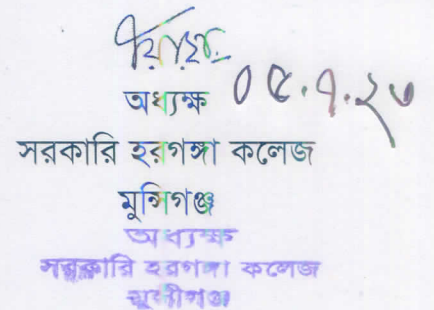 ০৫.৭.২৩
অধ্যক্ষ
সরকারি হরগঙ্গা কলেজ
মুন্সিগঞ্জ
অধ্যক্ষ
সরকারি হরগঙ্গা কলেজ
মুন্সীগঞ্জ